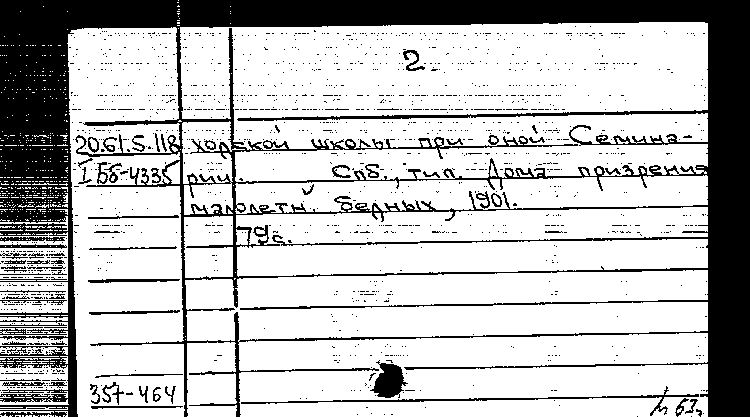 2
20.61.5.118 ходской школы при оной Семина-
I Бб-4335 рии. Спб., тип. Дома призрения
малолетн. бедных, 1901.
79с.
357-464